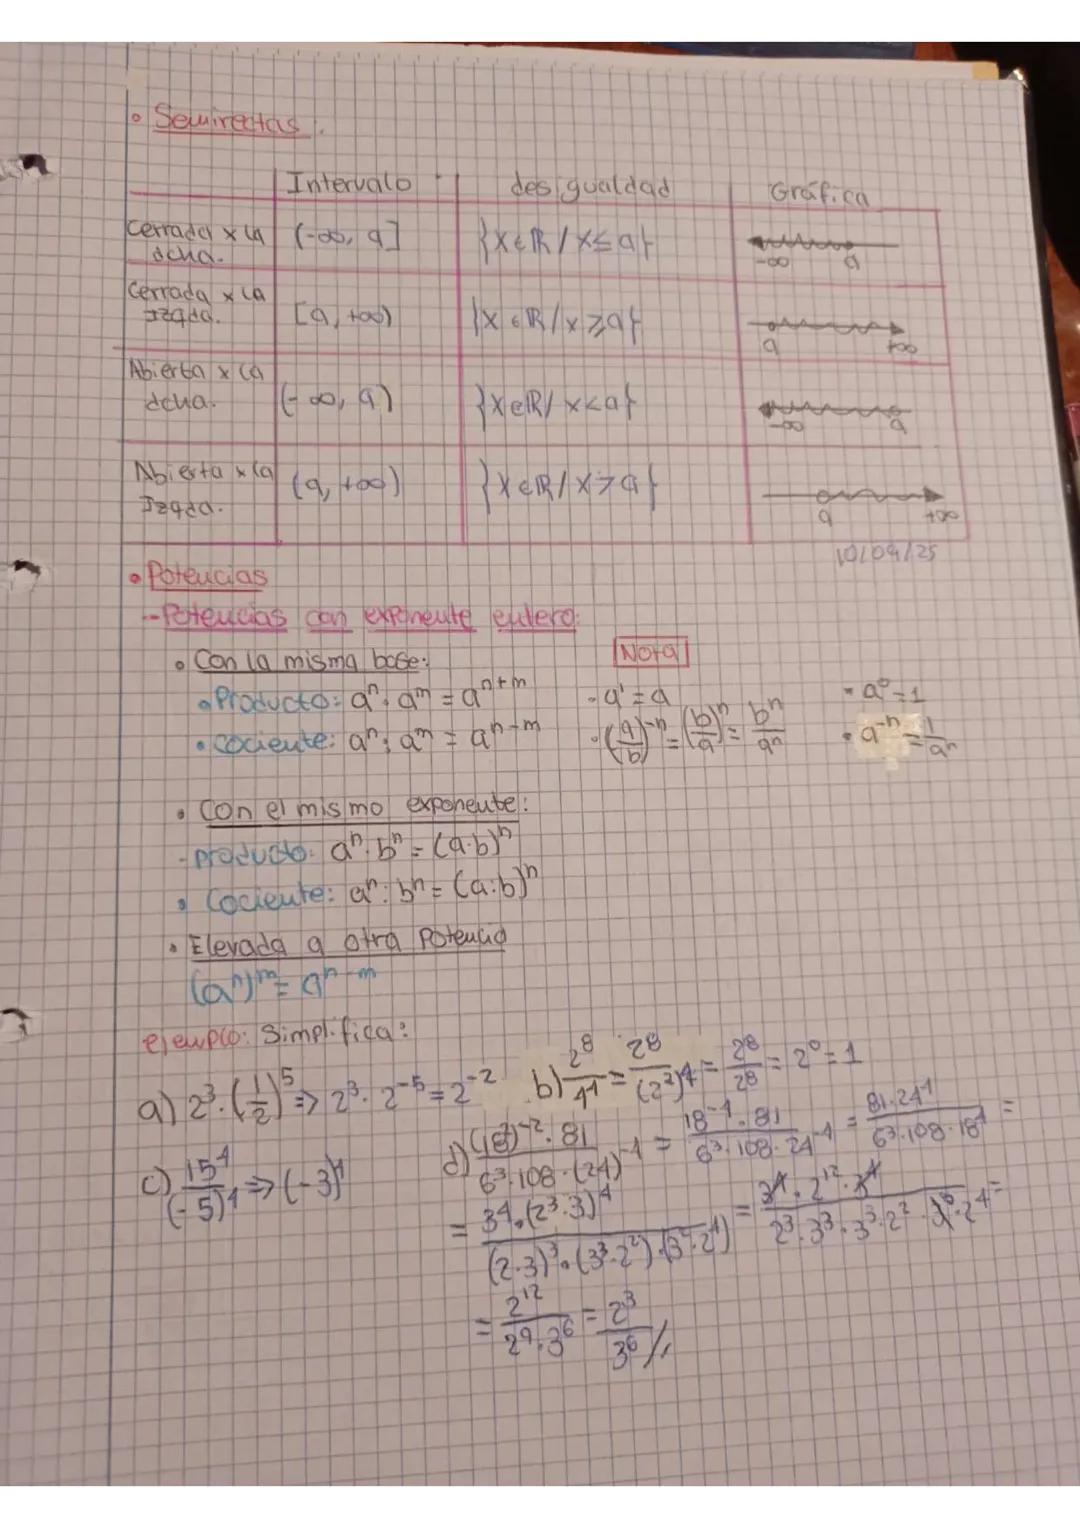 • Semirectas.
Intervalo desigualdad Gráfica
Cerrada x la dcha. (-∞, a] {x∈ℝ / x≤a} -∞ a
Cerrada x la Izqda. [a, +∞) {x∈ℝ / x≥a} a +∞
Abierta x la dcha. (-∞, a) {x∈ℝ / x<a} -∞ a
Abierta x la Izqda. (a, +∞) {x∈ℝ / x>a} a +∞
10/09/25
• Potencias
- Potencias con exponente entero:
• Con la misma base: Nota
• Producto: aⁿ · aᵐ = aⁿ⁺ᵐ - a¹ = a - a⁰ = 1
• cociente: aⁿ : aᵐ = aⁿ⁻ᵐ • (a/b)⁻ⁿ = (b/a)ⁿ = bⁿ/aⁿ • a⁻ⁿ = 1/aⁿ
• Con el mismo exponente:
- producto: aⁿ · bⁿ = (a·b)ⁿ
• Cociente: aⁿ : bⁿ = (a:b)ⁿ
• Elevada a otra Potencia
(aⁿ)ᵐ = aⁿ·ᵐ
ejemplo: Simplifica:
a) 2³ · (1/2)⁵ ⇒ 2³ · 2⁻⁵ = 2⁻² b) 2⁸/4⁴ = 2⁸/(2²)⁴ = 2⁸/2⁸ = 2⁰ = 1
c) 15⁴/(-5)⁴ ⇒ (-3)⁴ d) (18²)⁻² · 81 / 6³ · 108 · (24)⁻⁴ = 18⁻⁴ · 81 / 6³ · 108 · 24⁻⁴ = 81 · 24⁴ / 6³ · 108 · 18⁴ =
= 3⁴ · (2³ · 3)⁴ / (2·3)³ · (3³·2²) · (3²·2⁴) = 3⁴ · 2¹² · 3⁴ / 2³ · 3³ · 3³ · 2² · 3⁸ · 2⁴ =
= 2¹² / 2⁹ · 3⁶ = 2³/3⁶